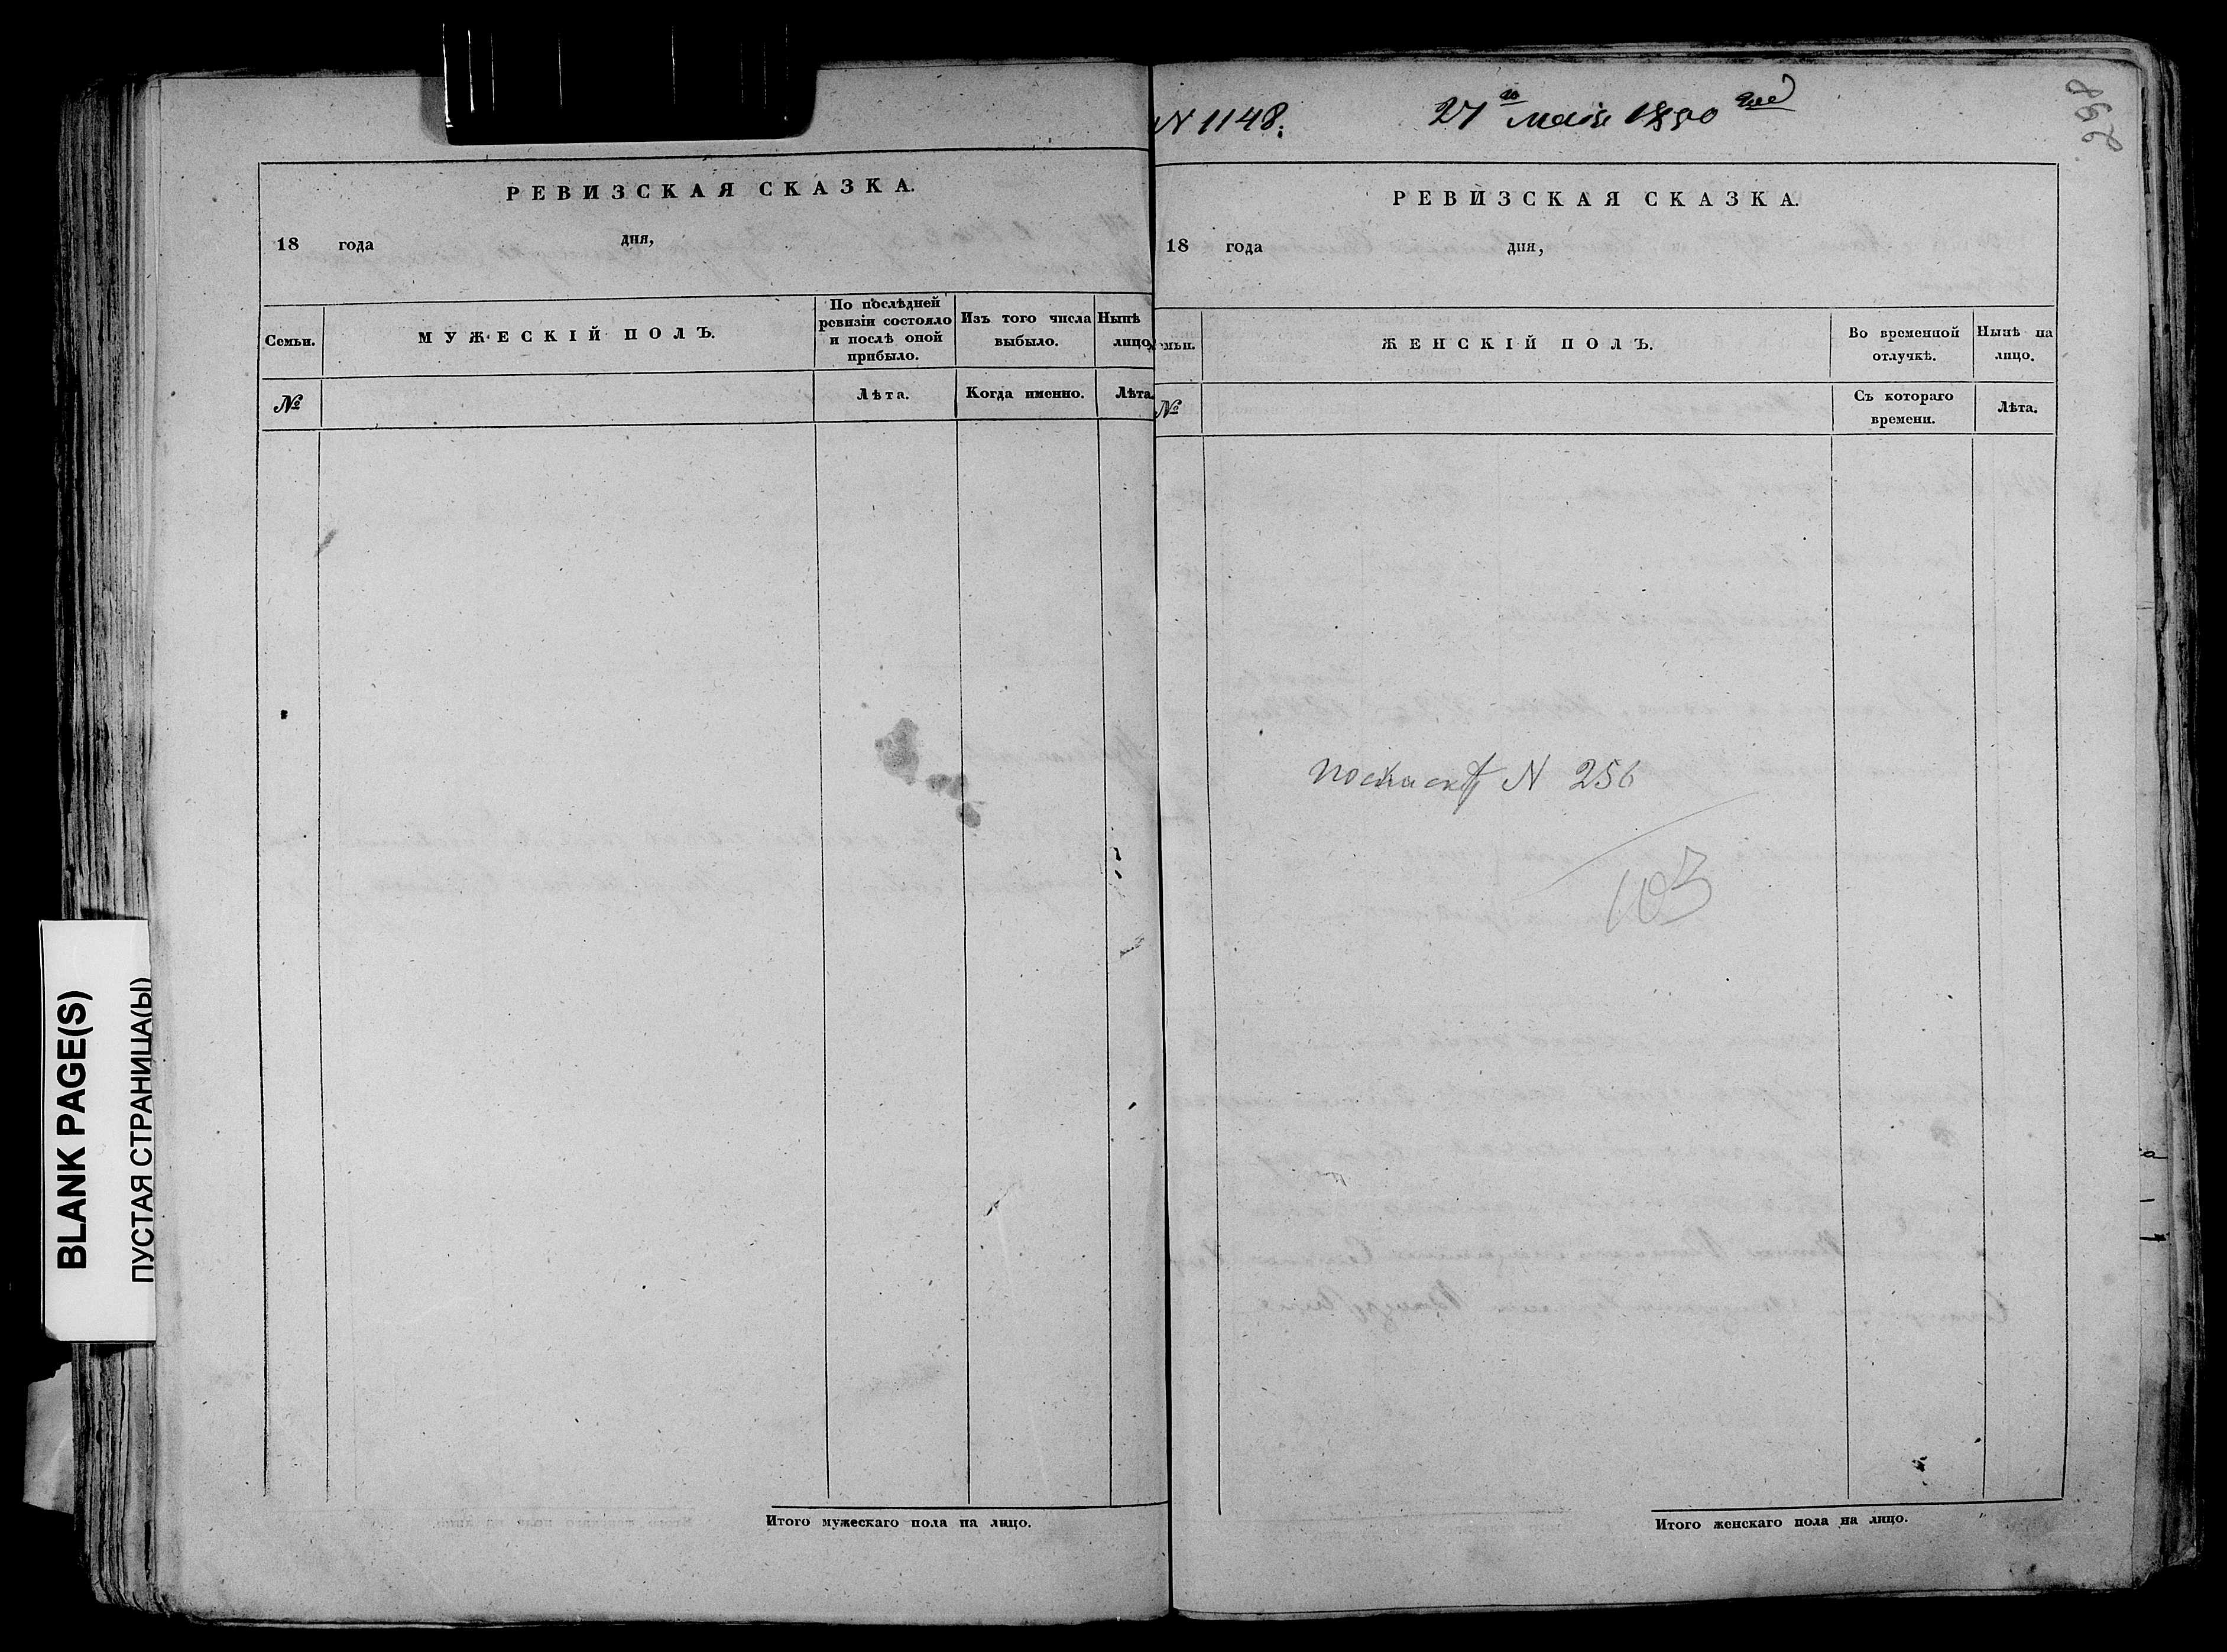 BLANK PAGE(S)
ПУСТАЯ СТРАНИЦА(Ы)
РЕВИЗСКАЯ СКАЗКА.
18 года дня,
Семьи.
МУЖЕСКІЙ ПОЛЪ.
По послѣдней
ревизіи состояло
и послѣ оной
прибыло.
Изъ того числа
выбыло.
Нынѣ
лицо
№
Лѣта.
Когда именно.
Лѣта.
Итого мужескаго пола на лицо.
N 1148.
27 мая 1850
298
РЕВИЗСКАЯ СКАЗКА.
18 года дня,
мьи.
ЖЕНСКІЙ ПОЛЪ.
Во временной
отлучкѣ.
Нынѣ на
лицо.
№
Съ котораго
времени.
Лѣта.
N 256
103
Итого женскаго пола на лицо.